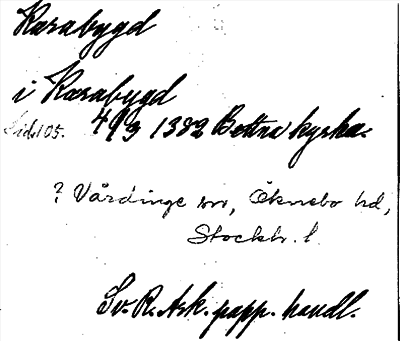 Karabygd
i Karabygd
Sid 105. 4/3 1382 Bettna kyrka.
? Vårdinge sn, Öknebo hd,
Stockh. l.
Sv. R. Ark. papp. handl.